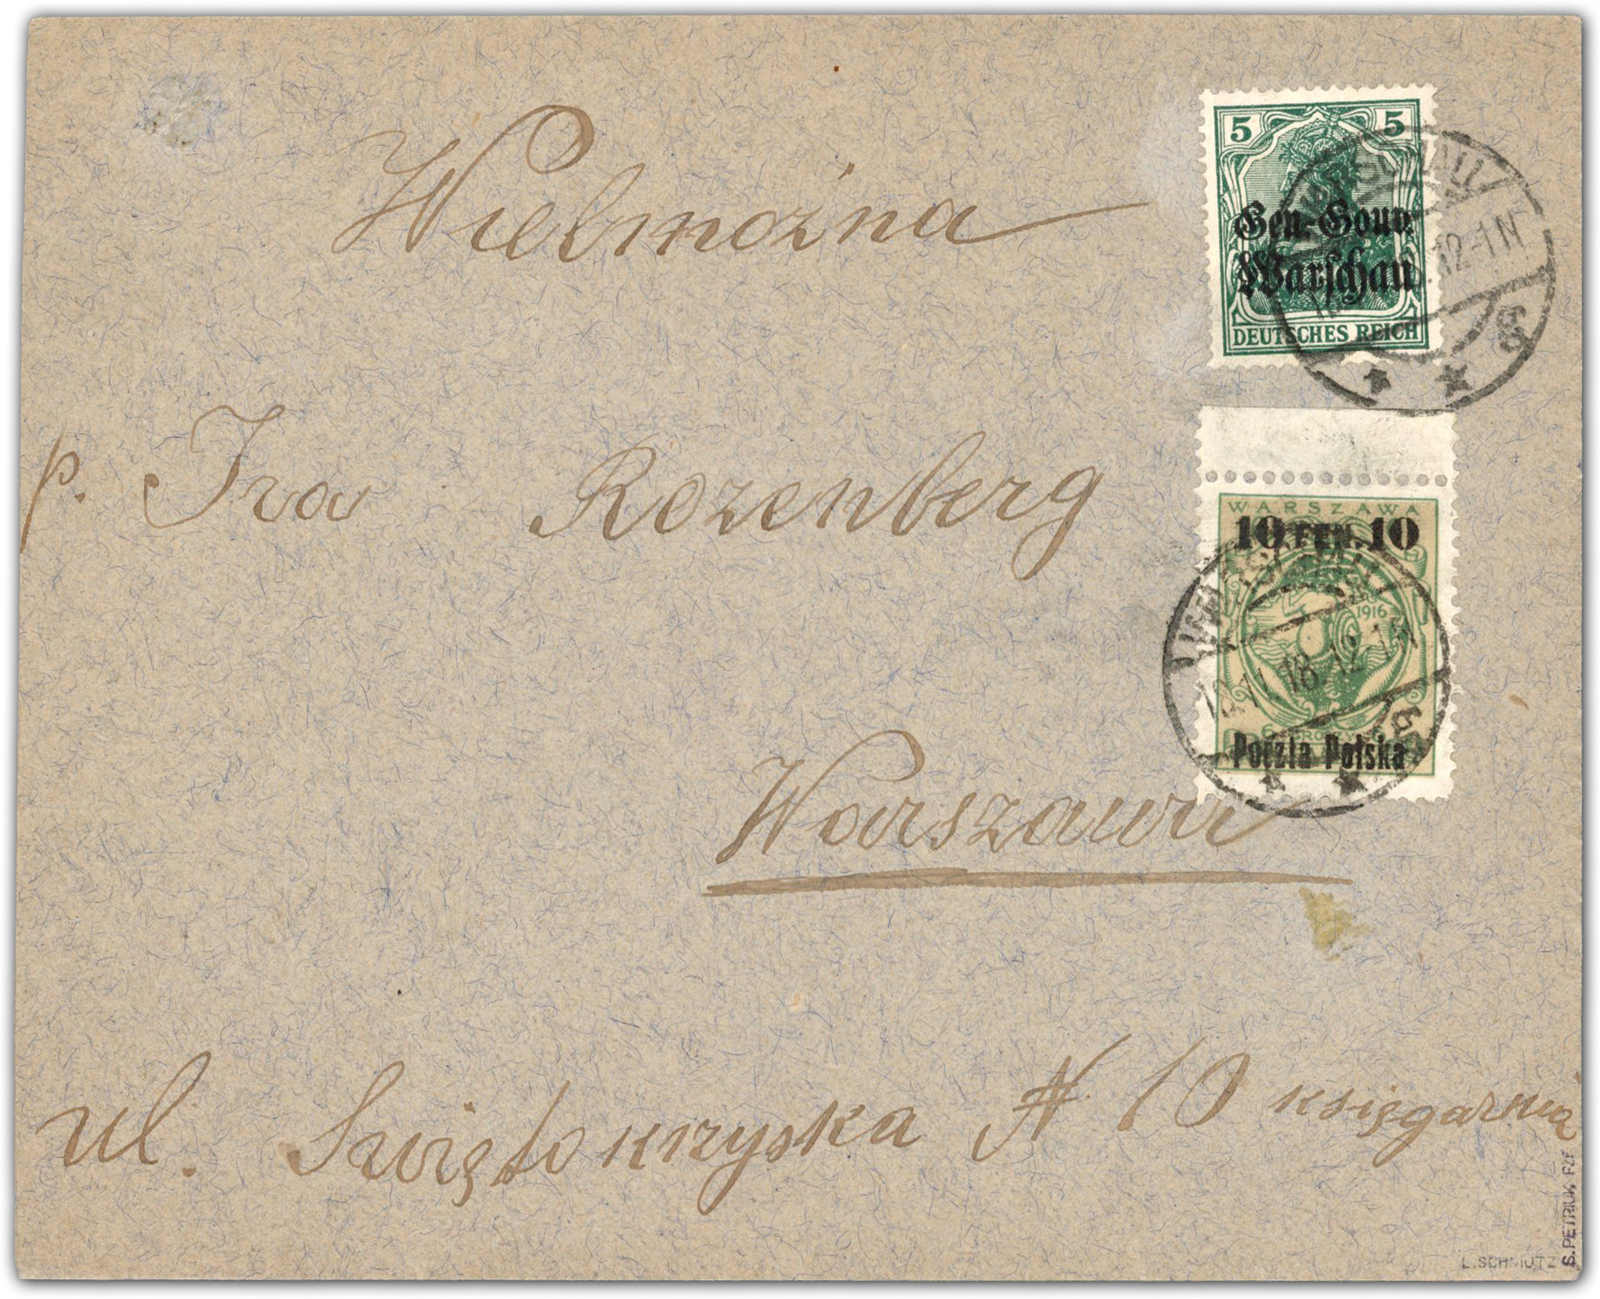 Wielmożna
p. Iza Rozenberg
Warszawa
ul. Świętokrzyska N 10 księgarnia
5 5
Gen.-Gouv.
Warschau
DEUTSCHES REICH
WARSCHAU
12-1N
WARSZAWA
10 FEN. 10
1916
6 GROSZY 6
Poczta Polska
WARSCHAU
18.12-1N
L. SCHMUTZ
S. PETRIUK